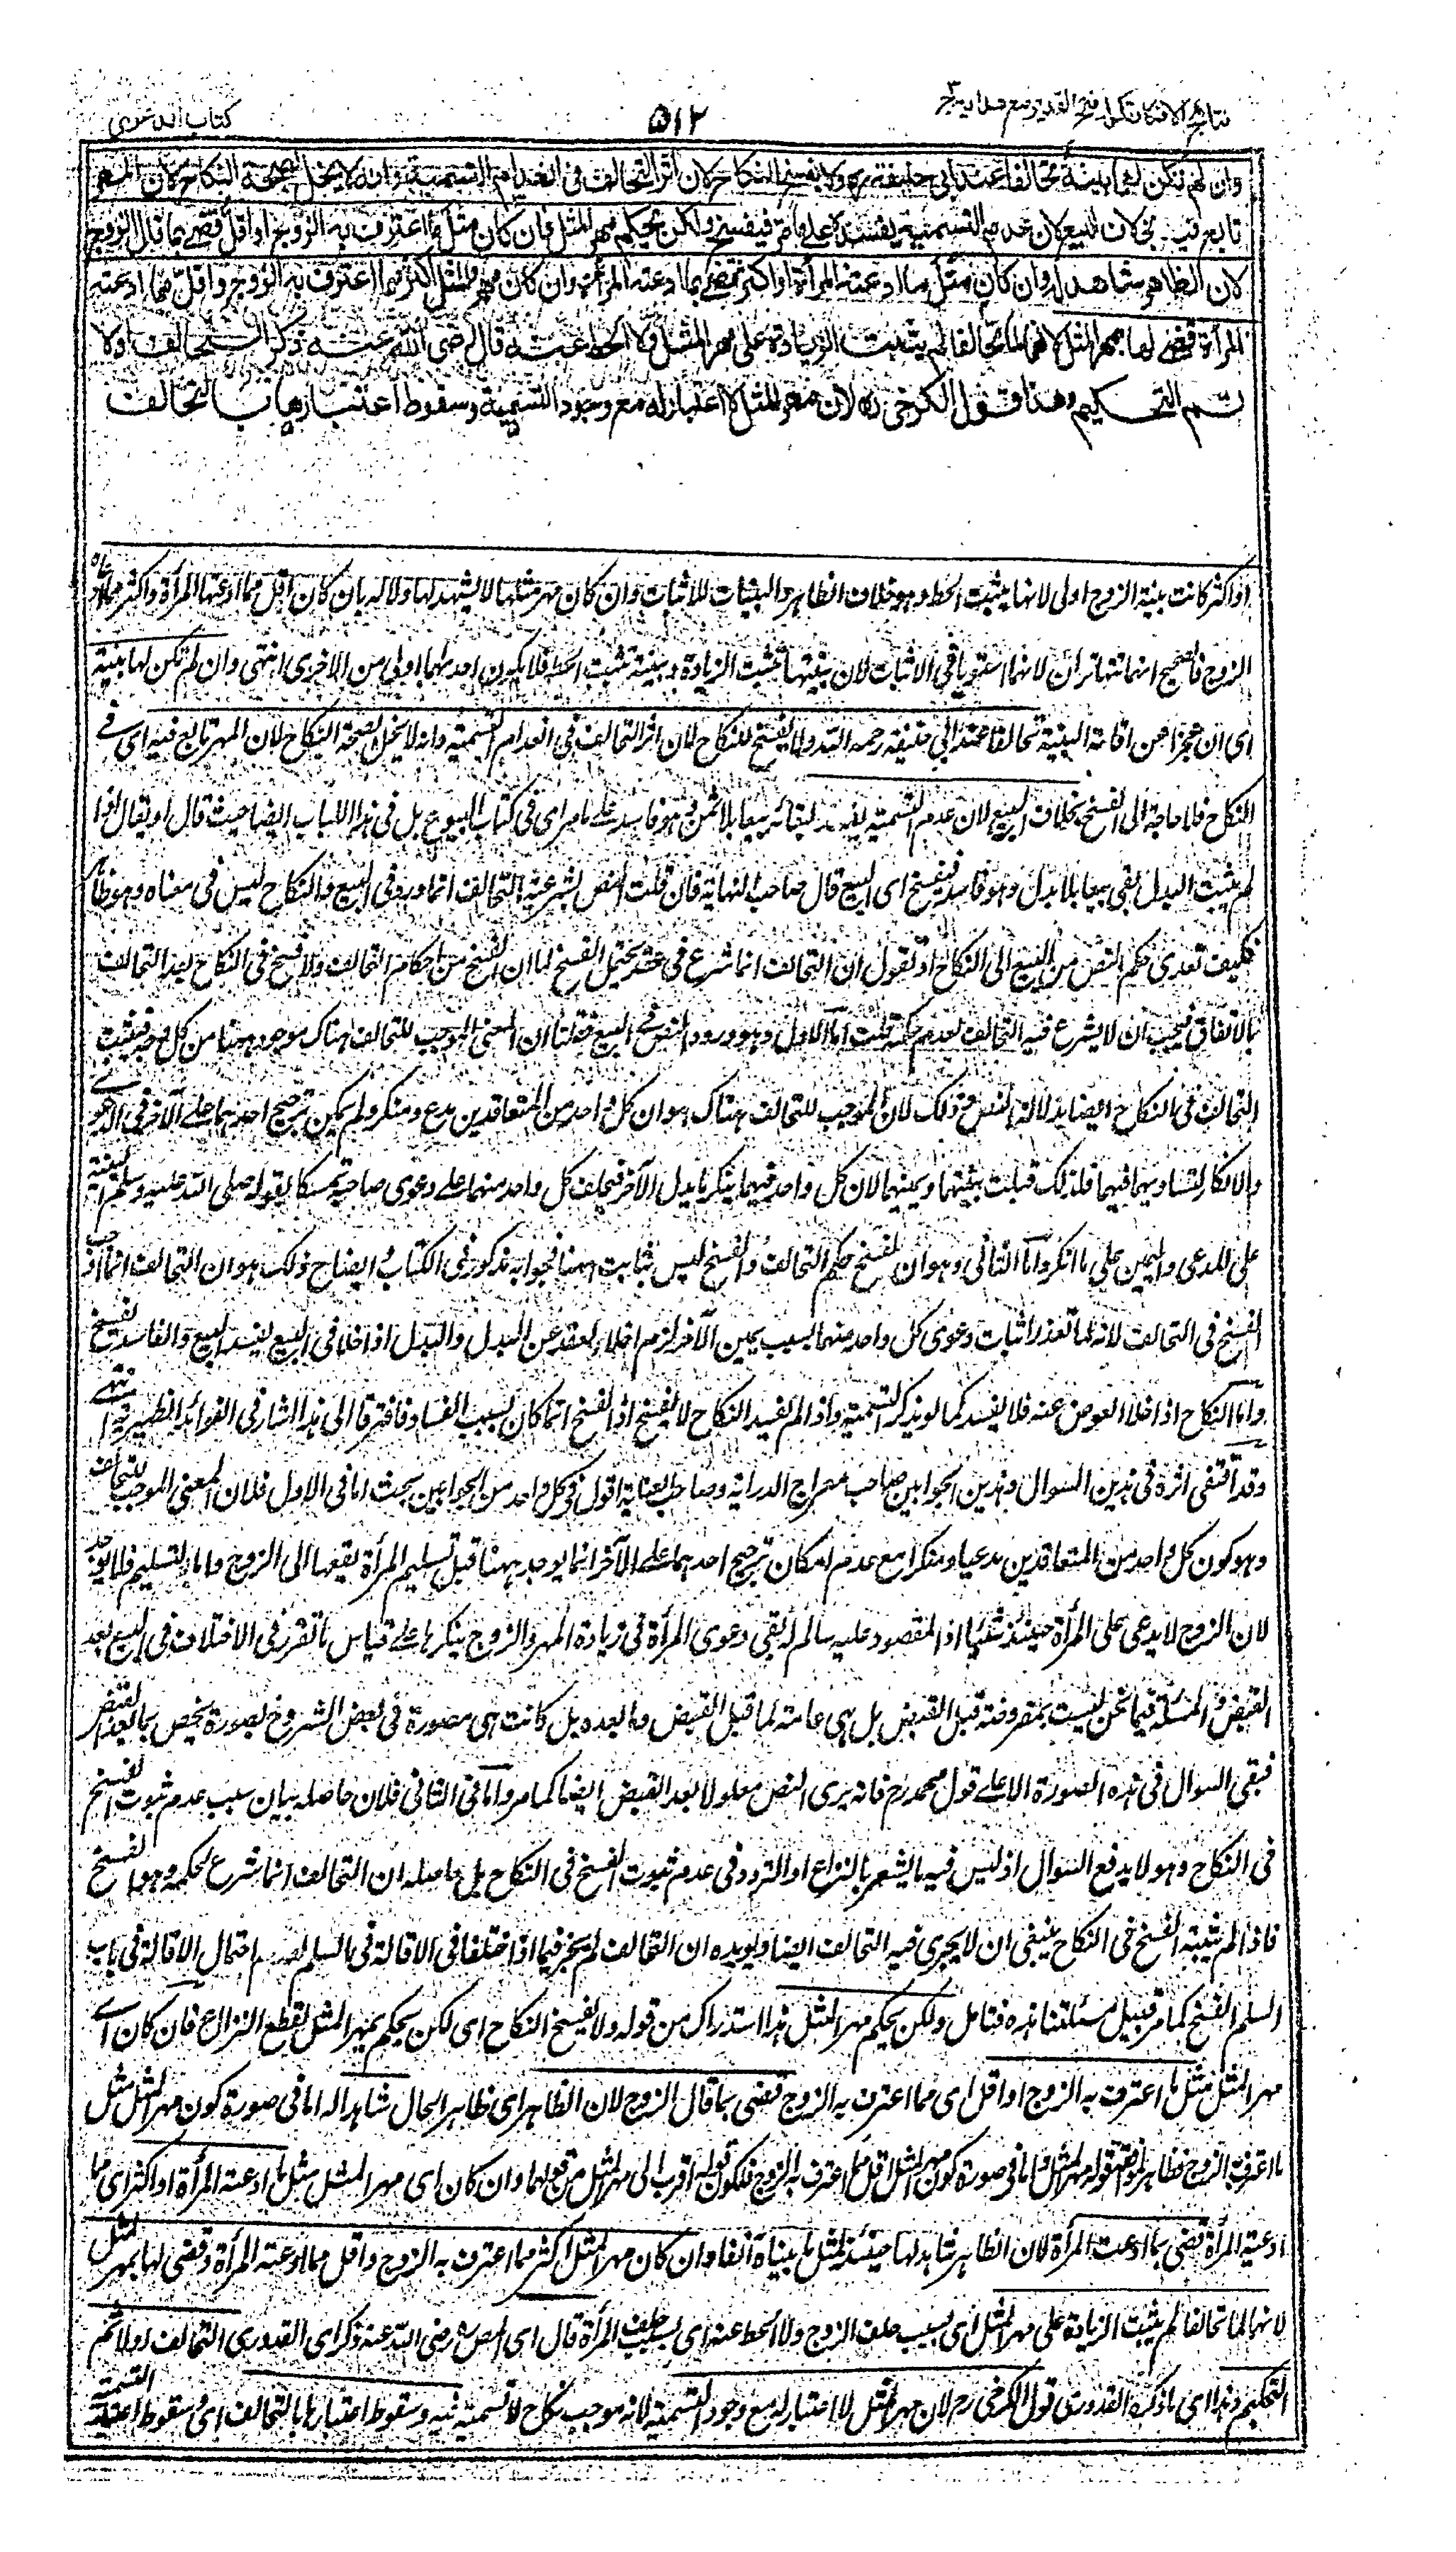 نتائج الافكار تكملہ فتح القدیر مع ہدایہ ج ۳
۵۱۲
كتاب الدعوى
وان لم تكن لهما بينة تحالفا عند ابي حنيفة رح ولا يفسخ النكاح لان اثر التحالف في انعدام التسمية وانه لا يخل بصحة النكاح لان المهر
تابع فيه بخلاف البيع لان عدم التسمية يفسده على ما مر فيفسخ ولكن يحكم مهر المثل فان كان مثل ما اعترف به الزوج او اقل قضي بما قال الزوج
لان الظاهر شاهد له وان كان مثل ما ادعته المرأة او اكثر قضي بما ادعته المرأة وان كان مهر المثل اكثر مما اعترف به الزوج واقل مما ادعته
المرأة قضي لها بمهر المثل لانهما لما تحالفا لم يثبت الزيادة على مهر المثل ولا الحط عنه قال رضي الله عنه ذكر التحالف اولا
ثم التحكيم وهذا قول الكرخي رح لان مهر المثل لا اعتبار له مع وجود التسمية وسقوط اعتبارها بالتحالف
او اكثر كانت بينة الزوج اولى لانها يثبت الحط وهو خلاف الظاهر والبينات للاثبات وان كان مهر مثلها لا يشهد لها ولا له بان كان اقل مما ادعتها المرأة واكثر مما ادعاه
الزوج فالصحيح انهما تتهاتران لانهما استويا في الاثبات لان بينتها تثبت الزيادة وبينته تثبت الحط فلا يكون احدهما اولى من الاخرى انتهى وان لم تكن لهما بينة
اى ان عجزا عن اقامة البينة تحالفا عند ابي حنيفة رحمه الله ولا يفسخ النكاح لان اثر التحالف في انعدام التسمية وانه لا يخل بصحة النكاح لان المهر تابع فيه اى فى
النكاح فلا حاجة الى الفسخ بخلاف البيع لان عدم التسمية يفسده لبقائه بيعا بلا ثمن وهو فاسد على ما مر اى فى كتاب البيوع بل فى هذا الباب ايضا حيث قال او يقال اذا
لم يثبت البدل بقى بيعا بلا بدل وهو فاسد فيفسخ اى البيع قال صاحب النهاية فان قلت النص بشرعية التحالف انما ورد فى البيع والنكاح ليس فى معناه وهو ظاهر
فكيف تعدى حكم النص من البيع الى النكاح او نقول ان التحالف انما شرع فى عقد يحتمل الفسخ لما ان الفسخ من احكام التحالف ولا فسخ فى النكاح بعد التحالف
بالاتفاق فيجب ان لا يشرع فيه التحالف لعدم حكمه قلت اما الاول وهو ورود النص فى البيع فقلنا ان المعنى الموجب للتحالف هناك موجود ههنا من كل وجه فيثبت
التحالف فى النكاح ايضا بدلالة النص وذلك لان الموجب للتحالف هناك هو ان كل واحد من المتعاقدين مدع ومنكر ولم يمكن ترجيح احدهما على الآخر فى الدعوى
والانكار لتساويهما فيهما فلذلك قبلت بينتهما ويمينهما لان كل واحد فيهما ينكر ما يدل الآخر فيحلف كل واحد منهما على دعوى صاحبه تمسكا بقوله صلى الله عليه وسلم البينة
على المدعى واليمين على ما انكر واما الثانى وهو ان الفسخ حكم التحالف والفسخ ليس بثابت ههنا فجوابه مذكور فى الكتاب وايضاح ذلك هو ان التحالف انما اوجب
الفسخ فى التحالف لانه لما تعذر اثبات دعوى كل واحد منهما بسبب يمين الآخر لزم اخلاء العقد عن البدل والبدل اذا خلا فى البيع يفسد البيع والفاسد يفسخ
واما النكاح اذا خلا العوض عنه فلا يفسد كما لو لم يذكر التسمية واذا لم يفسد النكاح لا يفسخ اذ الفسخ انما كان بسبب الفساد فافترقا الى هذا اشار فى الفوائد الظهيرية انتهى
وقد اقتفى اثره فى هذين السوال وهذين الجوابين صاحب معراج الدراية وصاحب العناية اقول فى كل واحد من الجوابين بحث اما فى الاول فلان المعنى الموجب للتحالف
وهو كون كل واحد من المتعاقدين مدعيا ومنكرا مع عدم امكان ترجيح احدهما على الآخر انما يوجد ههنا قبل تسليم المرأة بضعها الى الزوج واما بعد التسليم فلا يوجد
لان الزوج لا يدعى على المرأة حينئذ شيئا اذ المقصود عليه سالم له بقى دعوى المرأة فى زيادة المهر والزوج ينكرها على قياس ما تقرر فى الاختلاف فى البيع بعد
القبض والمسئلة فيما نحن ليست بمفروضة قبل القبض بل هى عامة لما قبل القبض وما بعده بل كانت هى مصورة فى بعض الشروح بصورة يخص بما بعد القبض
فبقى السوال فى هذه الصورة الا على قول محمد رح فانه يرى النص معلولا بعد القبض ايضا كما مر واما فى الثانى فلان حاصله بيان سبب عدم ثبوت الفسخ
فى النكاح وهو لا يدفع السوال اذ ليس فيه ما يشعر بالنزاع او التردد فى عدم ثبوت الفسخ فى النكاح بل حاصله ان التحالف انما شرع لحكمه وهو الفسخ
فاذا لم يثبت الفسخ فى النكاح ينبغى ان لا يجرى فيه التحالف ايضا ويؤيده ان التحالف لم يجز فيما اذا اختلفا فى الاقالة فى السلم لعدم احتمال الاقالة فى باب
السلم الفسخ كما مر قبيل مسئلتنا هذه فتامل ولكن يحكم مهر المثل هذا استدراك من قوله ولا يفسخ النكاح اى لكن يحكم بمهر المثل لقطع النزاع فان كان اى
مهر المثل مثل ما اعترف به الزوج او اقل اى مما اعترف به الزوج قضى بما قال الزوج لان الظاهر اى ظاهر الحال شاهد له اما فى صورة كون مهر المثل مثل
ما اعترف الزوج فظاهر لموافقة قوله مهر المثل واما فى صورة كون مهر المثل اقل مما اعترف به الزوج فلكون قوله اقرب الى مهر المثل من قولها وان كان اى مهر المثل مثل ما ادعته المرأة او اكثر اى مما
ادعته المرأة قضى بما ادعت المرأة لان الظاهر شاهد لها حينئذ لمثل ما بيناه آنفا وان كان مهر المثل اكثر مما اعترف به الزوج واقل مما ادعته المرأة وقضى لها بمهر المثل
لانهما لما تحالفا لم يثبت الزيادة على مهر المثل اى بسبب حلف الزوج ولا الحط عنه اى بسبب حلف المرأة قال اى المص رح رضى الله عنه ذكر اى القدورى التحالف اولا ثم
التحكيم وهذا اى ما ذكره القدورى قول الكرخى رح لان مهر المثل لا اعتبار له مع وجود التسمية لانه موجب نكاح لا تسمية فيه وسقوط اعتبارها بالتحالف اى سقوط اعتبار التسمية